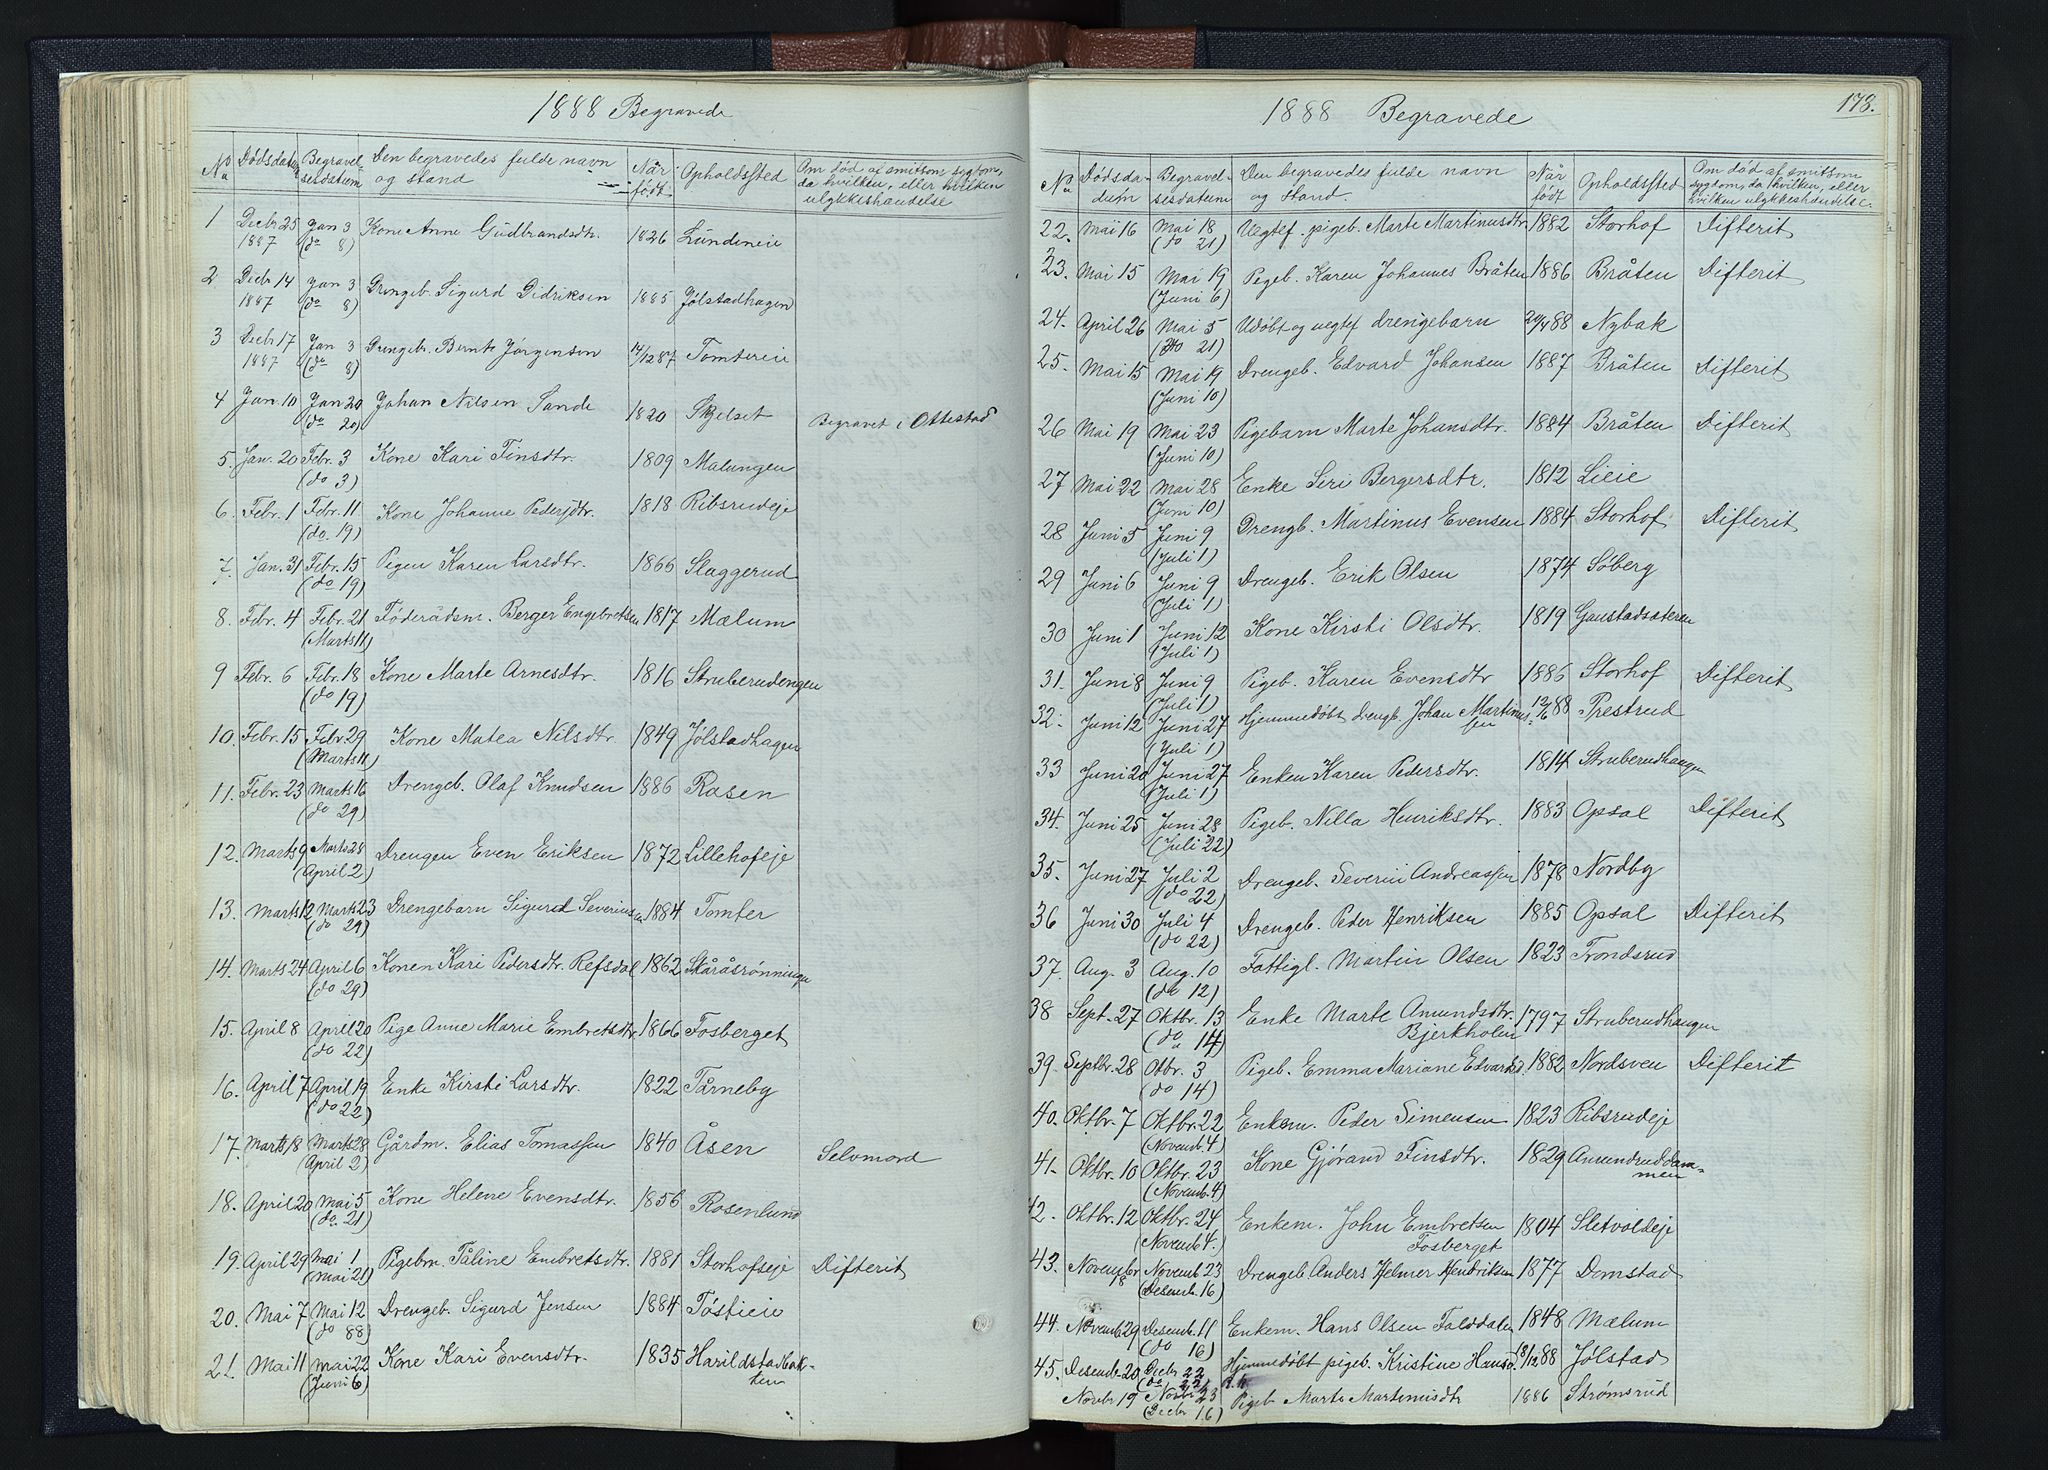 1888 Begravede
No Dødsdatum Begravelsesdatum Den begravedes fulde navn og stand Når født Opholdsted Om død af smitsom sygdom, da hvilken, eller hvilken ulykkeshændelse
1 Decbr 25 1887 Jan 3 (do 8) Kone Anne Gudbrandsdtr. 1826 Lundeneie
2 Decbr 14 1887 Jan 3 (do 8) Drengeb. Sigurd Didriksen 1885 Jølstadhagen
3 Decbr 17 1887 Jan 3 (do 8) Drengebr. Bernt Jørgensen 14/12 87 Tomtereie
4 Jan. 10 Jan 20 (do 20) Johan Nilsen Sande 1820 Skjelset Begravet i Ottestad
5. Jan. 20 Febr. 3 (do 3) Kone Kari Finsdtr. 1809 Malungen
6. Febr. 1 Febr. 11 (do. 19) Kone Johanne Pedersdtr. 1818 Ribsrudeje
7. Jan. 31 Febr. 15 (do 19) Pigen Karen Larsdtr. 1866 Slaggerud
8. Febr. 4 Febr. 21 (Marts 11) Føderådsm. Berger Engebretsen 1817 Mælum
9 Febr. 6 Febr. 18 (do 19) Kone Marte Arnesdtr. 1816 Struberudengen
10. Febr. 15 Febr. 29 (Marts 11) Kone Matea Nilsdtr 1849 Jølstadhagen
11. Febr. 23 Marts 16 (do 29) Drengeb. Olaf Knudsen 1886 Rosen
12. Marts 9 Marts 28 (April 2) Drengen Even Eriksen 1872 Lillehofeje
13. Marts 12 Marts 23 (do 29) Drengebarn Sigurd Severinsen 1884 Tomter
14. Marts 24 April 6 (do 29) Konen Kari Pedersdtr. Refsdal 1862 Skåråsrønningen
15. April 8 April 20 (do 22) Pige Anne Marie Embretsdtr 1866 Fosberget
16. April 7 April 19 (do 22) Enke Kirsti Larsdtr. 1822 Tårneby
17. Marts 18 Marts 28 (April 2) Gårdm. Elias Tomassen 1840 Åsen Selvmord
18. April 20 Mai 5 (do. 21) Kone Helene Evensdtr. 1856 Rosenlund
19. April 29 Mai 1 (Mai 21) Pigebrn. Tåline Embretsdtr. 1881 Storhofseje Difterit
20. Mai 7 Mai 12 (do 88) Drengeb. Sigurd Jensen 1884 Tøsieie
21. Mai 11 Mai 22 (Juni 6) Kone Kari Evensdtr. 1835 Harildstadbakken
178.
1888 Begravede
No Dødsdadum Begravelsesdatum Den begravedes fulde navn og stand. Når født Opholdsted Om død af smitsom sygdom, da hvilken, eller hvilken ulykkeshændelse.
22. Mai 16 Mai 18 (do 21) Uegtef. pigeb. Marte Martinusdtr 1882 Storhof Difterit
23. Mai 15 Mai 19 (Juni 6) Pigeb. Karen Johannes Bråten 1886 Bråten Difterit
24. April 26 Mai 5 (Do 21) Udøbt og uegtef drengebarn 20/4 88 Nybak
25. Mai 15 Mai 19 (Juni 10) Drengeb. Edvard Johansen 1887 Bråten Difterit
26 Mai 19 Mai 23 (Juni 10) Pigebarn Marte Johansdtr. 1884 Bråten Difterit
27 Mai 22 Mai 28 (Juni 10) Enke Siri Bergersdtr. 1812 Lieie
28 Juni 5 Juni 9 (Juli 1) Drengb. Martinus Evensen 1884 Storhof Difterit
29 Juni 6 Juni 9 (Juli 1) Drengeb. Erik Olsen 1874 Søberg
30 Juni 1 Juni 12 (Juli 1) Kone Kirsti Olsdtr. 1819 Gaustadsæteren
31. Juni 8 Juni 9 (Juli 1) Pigeb. Karen Evensdtr 1886 Storhof Difterit
32. Juni 12 Juni 24 (Juli 1) Hjemmedøbt drengb. Johan Martinussen 12/6 88 Prestrud
33 Juni 20 Juni 27 (Juli 1) Enken Karen Pedersdtr. 1814 Struberudhaugen
34. Juni 25 Juni 28 (Juli 22) Pigeb. Nilla Henriksdtr. 1883 Opsal Difterit
35. Juni 27 Juli 2 (do 22) Drengeb. Severin Andreassen 1878 Nordby
36 Juni 30 Juli 4 (do 22) Drengeb. Peder Henriksen 1885 Opsal Difterit
37. Aug. 3 Aug. 10 (do 12) Fattigl. Martin Olsen 1823 Trondsrud
38 Sept. 27 Oktbr. 13 (do 14) Enke Marte Amundsdtr. Bjerkholen 1797 Struberudhaugen
39. Septbr. 28 Otbr. 3 (do 14) Pigeb. Emma Mariane Edvartsd. 1882 Nordsven Difterit
40. Oktbr. 7 Oktbr. 22 (Novemb. 4) Enkem. Peder Simensen 1823 Ribsrudeje
41. Oktbr. 10 Oktbr. 23 (Novemb. 4) Kone Gjørand Finsdtr. 1829 Amundruddammen
42. Oktbr. 12 Oktbr. 24 (Novemb 4.) Enkem. John Embretsen Fosberget 1804 Sletvoldeje
43. Novembr 8 Novemb. 23 (Desemb. 16) Drengeb Anders Helmer Hendriksen 1877 Domstad
44. Novemb. 29 Desemb. 11 (do 16) Enkem. Hans Olsen Falddalen 1848 Mælum
45. Desemb. 20 Decbr 22 (do 22) Hjemmedøbt pigeb. Kristine Hansd. 18/12 88 Jølstad
Novbr 19 Novbr 23 (Decbr 16) Pigeb Marte Martemusdtr 1886 Strømsrud